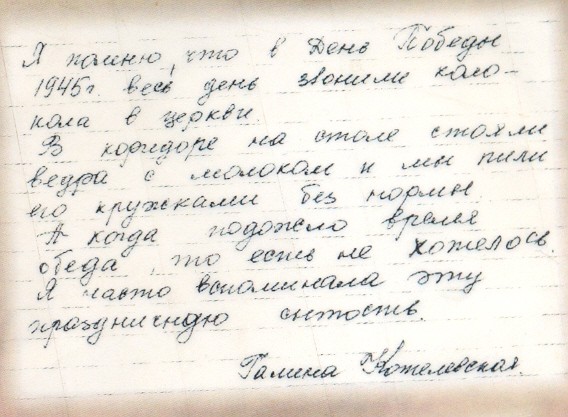 Я помню, что в День Победы
1945г. весь день звонили коло-
кола в церкви.
В коридоре на столе стояли
ведра с молоком и мы пили
его кружками без нормы.
А когда подошло время
обеда, то есть не хотелось.
Я часто вспоминала эту
праздничную сытость.
Галина Котелевская.